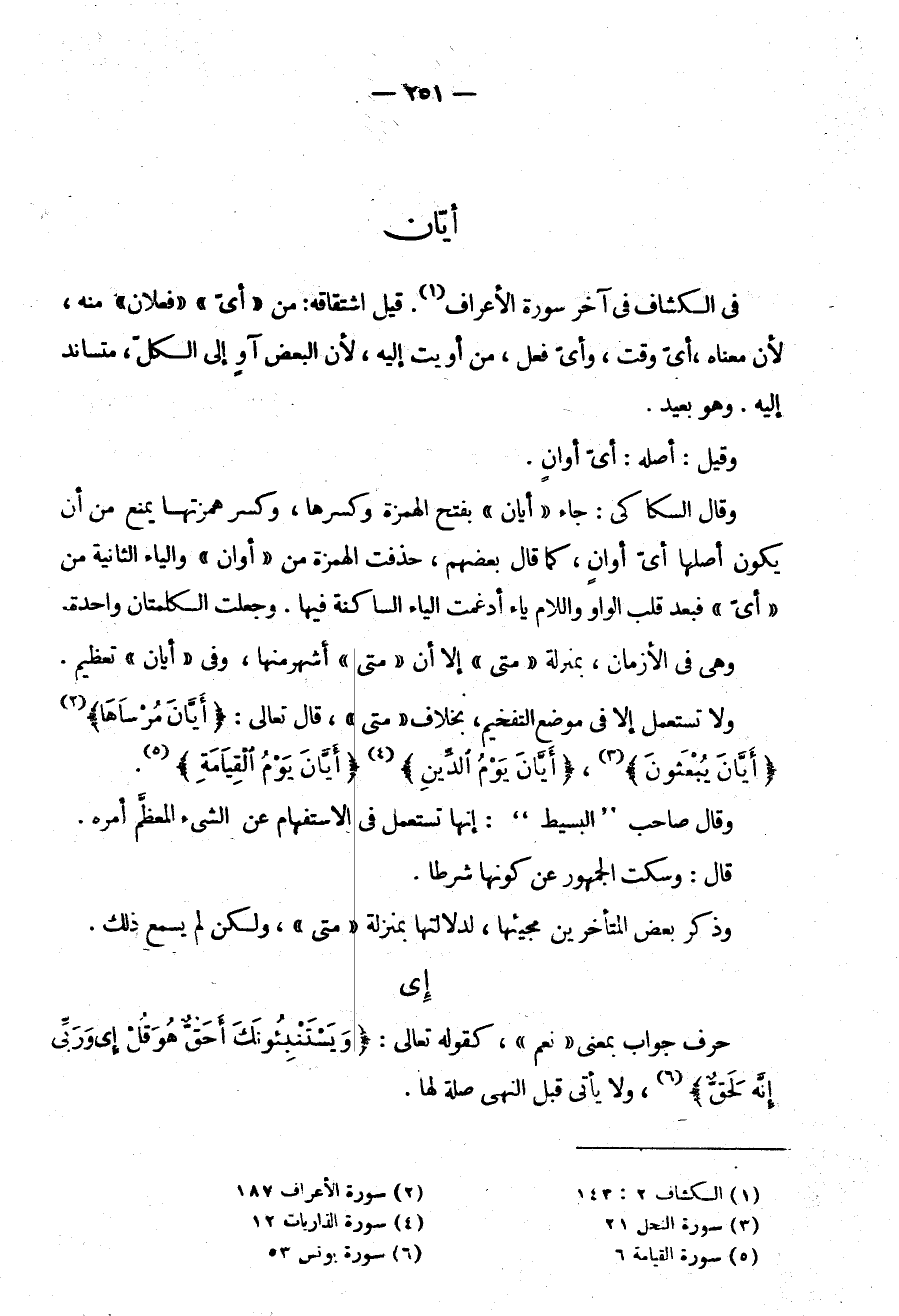 — ٢٥١ —
أيّان
فى الكشاف فى آخر سورة الأعراف(١). قيل اشتقاقه: من « أىّ » «فعلان» منه ،
لأن معناه ،أىّ وقت ، وأىّ فعل ، من أويت إليه ، لأن البعض آوٍ إلى الكلّ، متساند
إليه . وهو بعيد .
وقيل : أصله : أىّ أوانٍ .
وقال السكاكى : جاء « أيان » بفتح الهمزة وكسرها ، وكسر همزتها يمنع من أن
يكون أصلها أىّ أوانٍ ، كما قال بعضهم ، حذفت الهمزة من « أوان » والياء الثانية من
« أىّ » فبعد قلب الواو واللام ياء أدغمت الياء الساكنة فيها . وجعلت الكلمتان واحدة.
وهى فى الأزمان ، بمنزلة « متى » إلا أن « متى » أشهر منها ، وفى « أيان » تعظيم .
ولا تستعمل إلا فى موضع التفخيم، بخلاف« متى » ، قال تعالى : ﴿ أَيَّانَ مُرْسَاهَا﴾(٢)
﴿ أَيَّانَ يُبْعَثُونَ ﴾(٣) ، ﴿ أَيَّانَ يَوْمُ ٱلدِّينِ ﴾(٤) ﴿ أَيَّانَ يَوْمُ ٱلْقِيَامَةِ ﴾(٥).
وقال صاحب ”البسيط“ : إنها تستعمل فى الاستفهام عن الشىء المعظَّم أمره .
قال : وسكت الجمهور عن كونها شرطا .
وذكر بعض المتأخرين مجيئها ، لدلالتها بمنزلة « متى » ، ولكن لم يسمع ذلك .
إى
حرف جواب بمعنى« نعم » ، كقوله تعالى : ﴿ وَيَسْتَنْبِئُونَكَ أَحَقٌّ هُوَ قُلْ إِى وَرَبِّى
إِنَّه لَحَقٌّ ﴾(٦) ، ولا يأتى قبل النهى صلة لها .
(١) الكشاف ٢ : ١٤٣
(٢) سورة الأعراف ١٨٧
(٣) سورة النحل ٢١
(٤) سورة الذاريات ١٢
(٥) سورة القيامة ٦
(٦) سورة يونس ٥٣